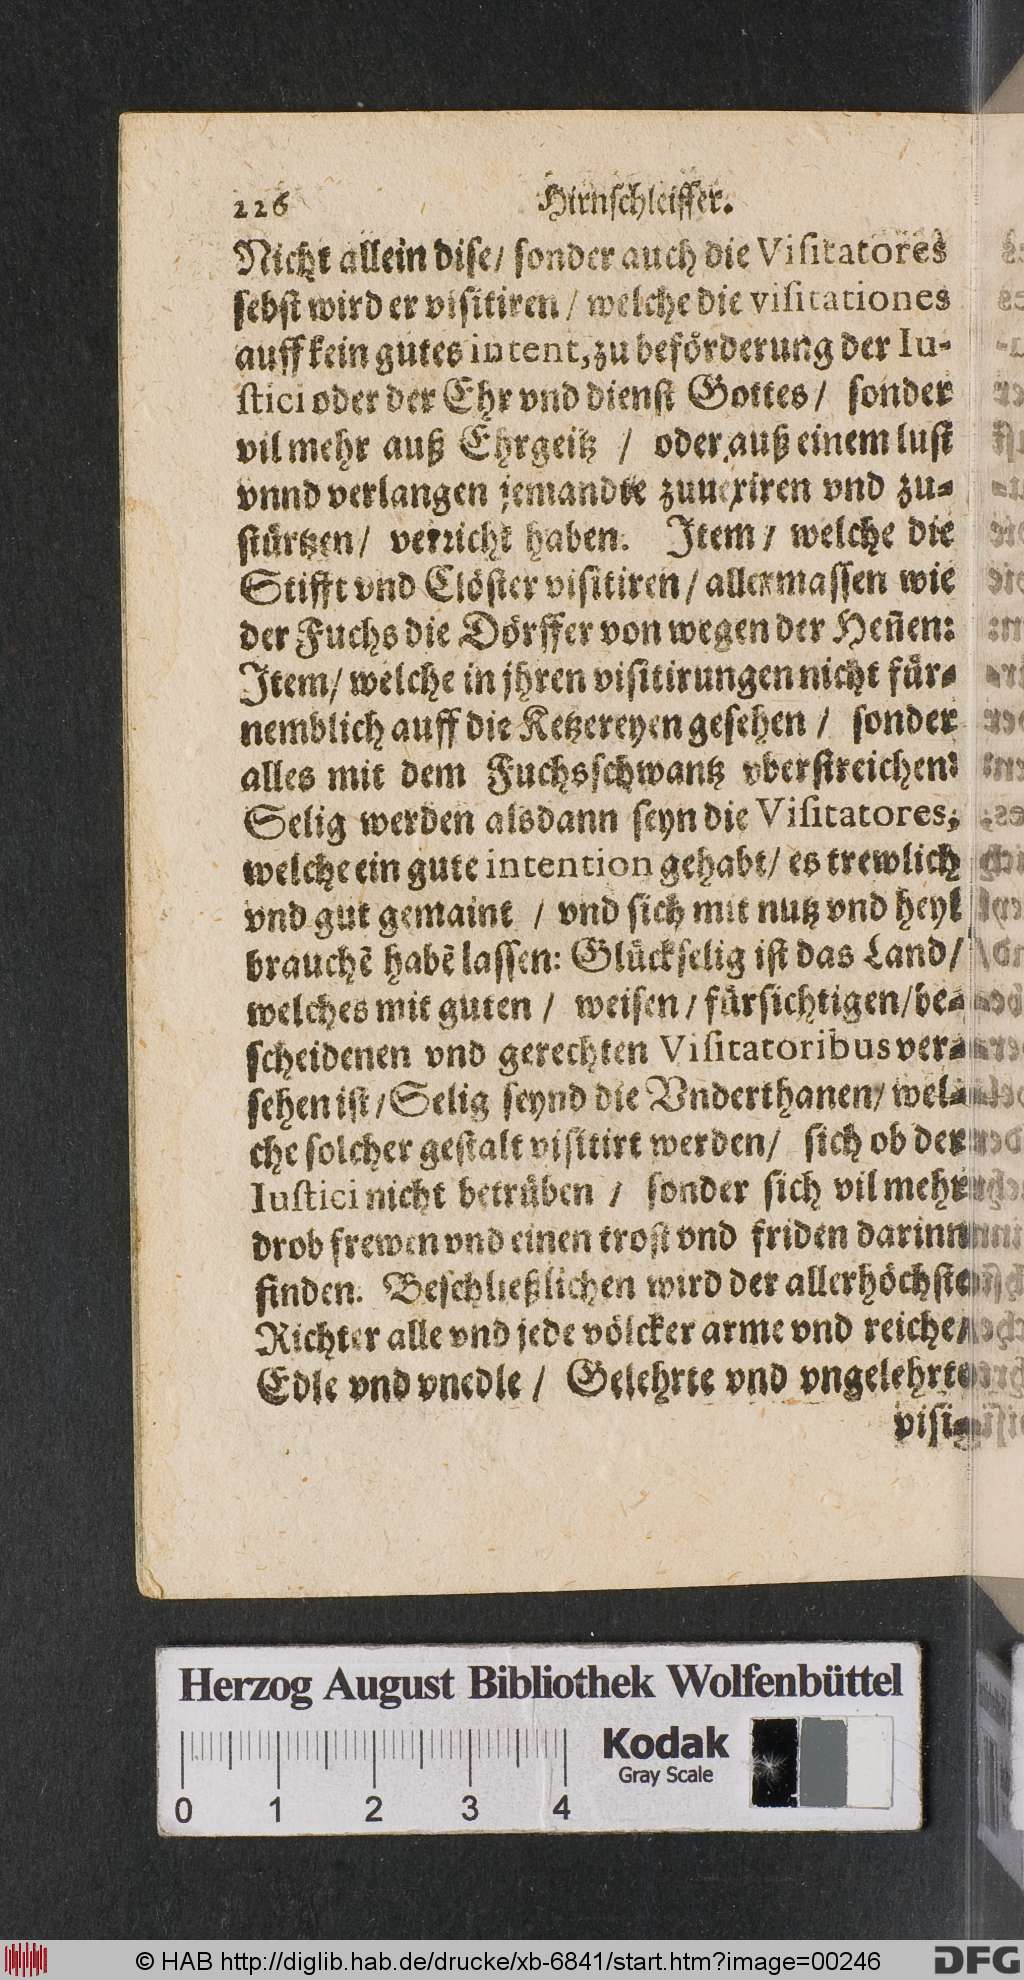 226 Hirnschleiffer.
Nicht allein dise/ sonder auch die Visitatores
sebst wird er visitiren / welche die visitationes
auff kein gutes intent, zu beförderung der Iu-
stici oder der Ehr vnd dienst Gottes / sonder
vil mehr auß Ehrgeitz / oder auß einem lust
vnnd verlangen jemandte zuuexiren vnd zu-
stürtzen/ verricht haben. Item / welche die
Stifft vnd Clöster visitiren / allermassen wie
der Fuchs die Dörffer von wegen der Heñen:
Item/ welche in jhren visitirungen nicht für-
nemblich auff die Ketzereyen gesehen / sonder
alles mit dem Fuchsschwantz vberstreichen:
Selig werden alsdann seyn die Visitatores,
welche ein gute intention gehabt/ es trewlich
vnd gut gemaint / vnd sich mit nutz vnd heyl
brauchẽ habẽ lassen: Glückselig ist das Land/
welches mit guten / weisen / fürsichtigen/ be-
scheidenen vnd gerechten Visitatoribus ver-
sehen ist / Selig seynd die Vnderthanen/ wel-
che solcher gestalt visitirt werden/ sich ob der
Iustici nicht betrüben / sonder sich vil mehr
drob frewen vnd einen trost vnd friden darinn
finden. Beschließlichen wird der allerhöchste
Richter alle vnd jede völcker arme vnd reiche/
Edle vnd vnedle / Gelehrte vnd vngelehrte
visi-
Herzog August Bibliothek Wolfenbüttel
Kodak
Gray Scale
0 1 2 3 4
© HAB http://diglib.hab.de/drucke/xb-6841/start.htm?image=00246
DFG